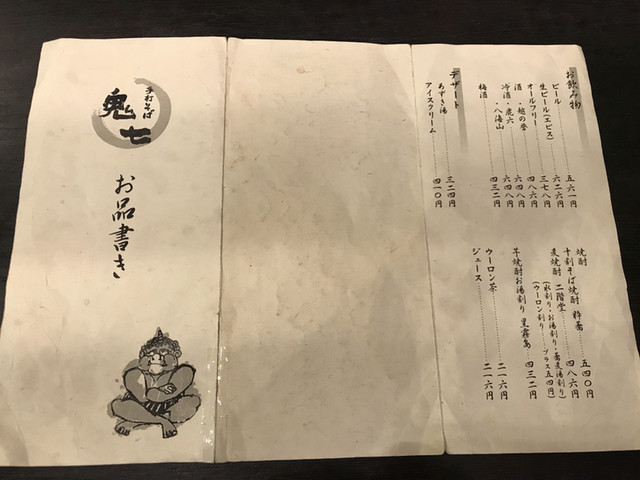 手打そば
鬼七
お品書き
お飲み物
ビール……五六一円
生ビール(エビス)……六二六円
オールフリー……三七八円
酒・越の誉……四八六円
冷酒・鹿六……六四八円
・八海山……六四八円
梅酒……四三二円
デザート
あずき湯……三二四円
アイスクリーム……四一〇円
焼酎
十割そば焼酎 粋蕎……五四〇円
麦焼酎 二階堂……四八六円
(水割り・お湯割り・蕎麦湯割り)
(ウーロン割り……プラス五四円)
芋焼酎お湯割り 黒霧島……四三二円
ウーロン茶……二一六円
ジュース……二一六円